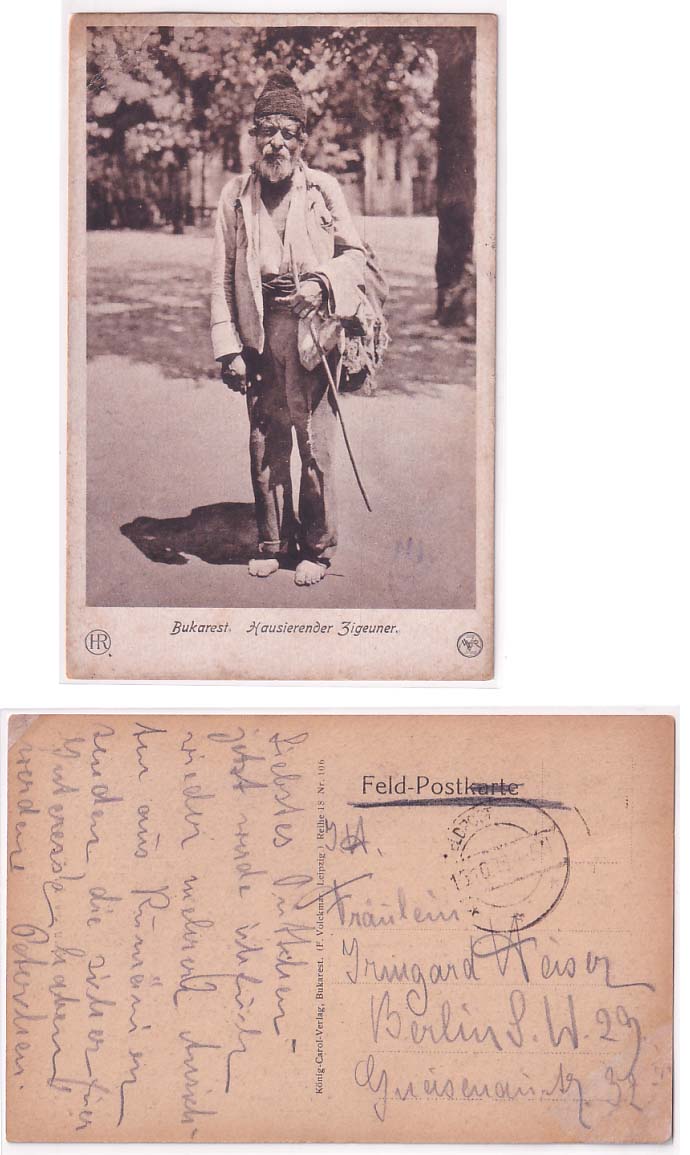 Bukarest. Hausierender Zigeuner.
HR
Liebstes
jetzt werde ich Euch
wieder mehrere Ansich-
ten aus Rumänien
senden die sicher für
Interesse haben
werden.
König-Carol-Verlag, Bukarest. (F. Volckmar, Leipzig.) Reihe 18 Nr. 106
Feld-Postkarte
Fräulein
Irmgard Weiser
Berlin S.W. 29
Gneisenaustr. 32